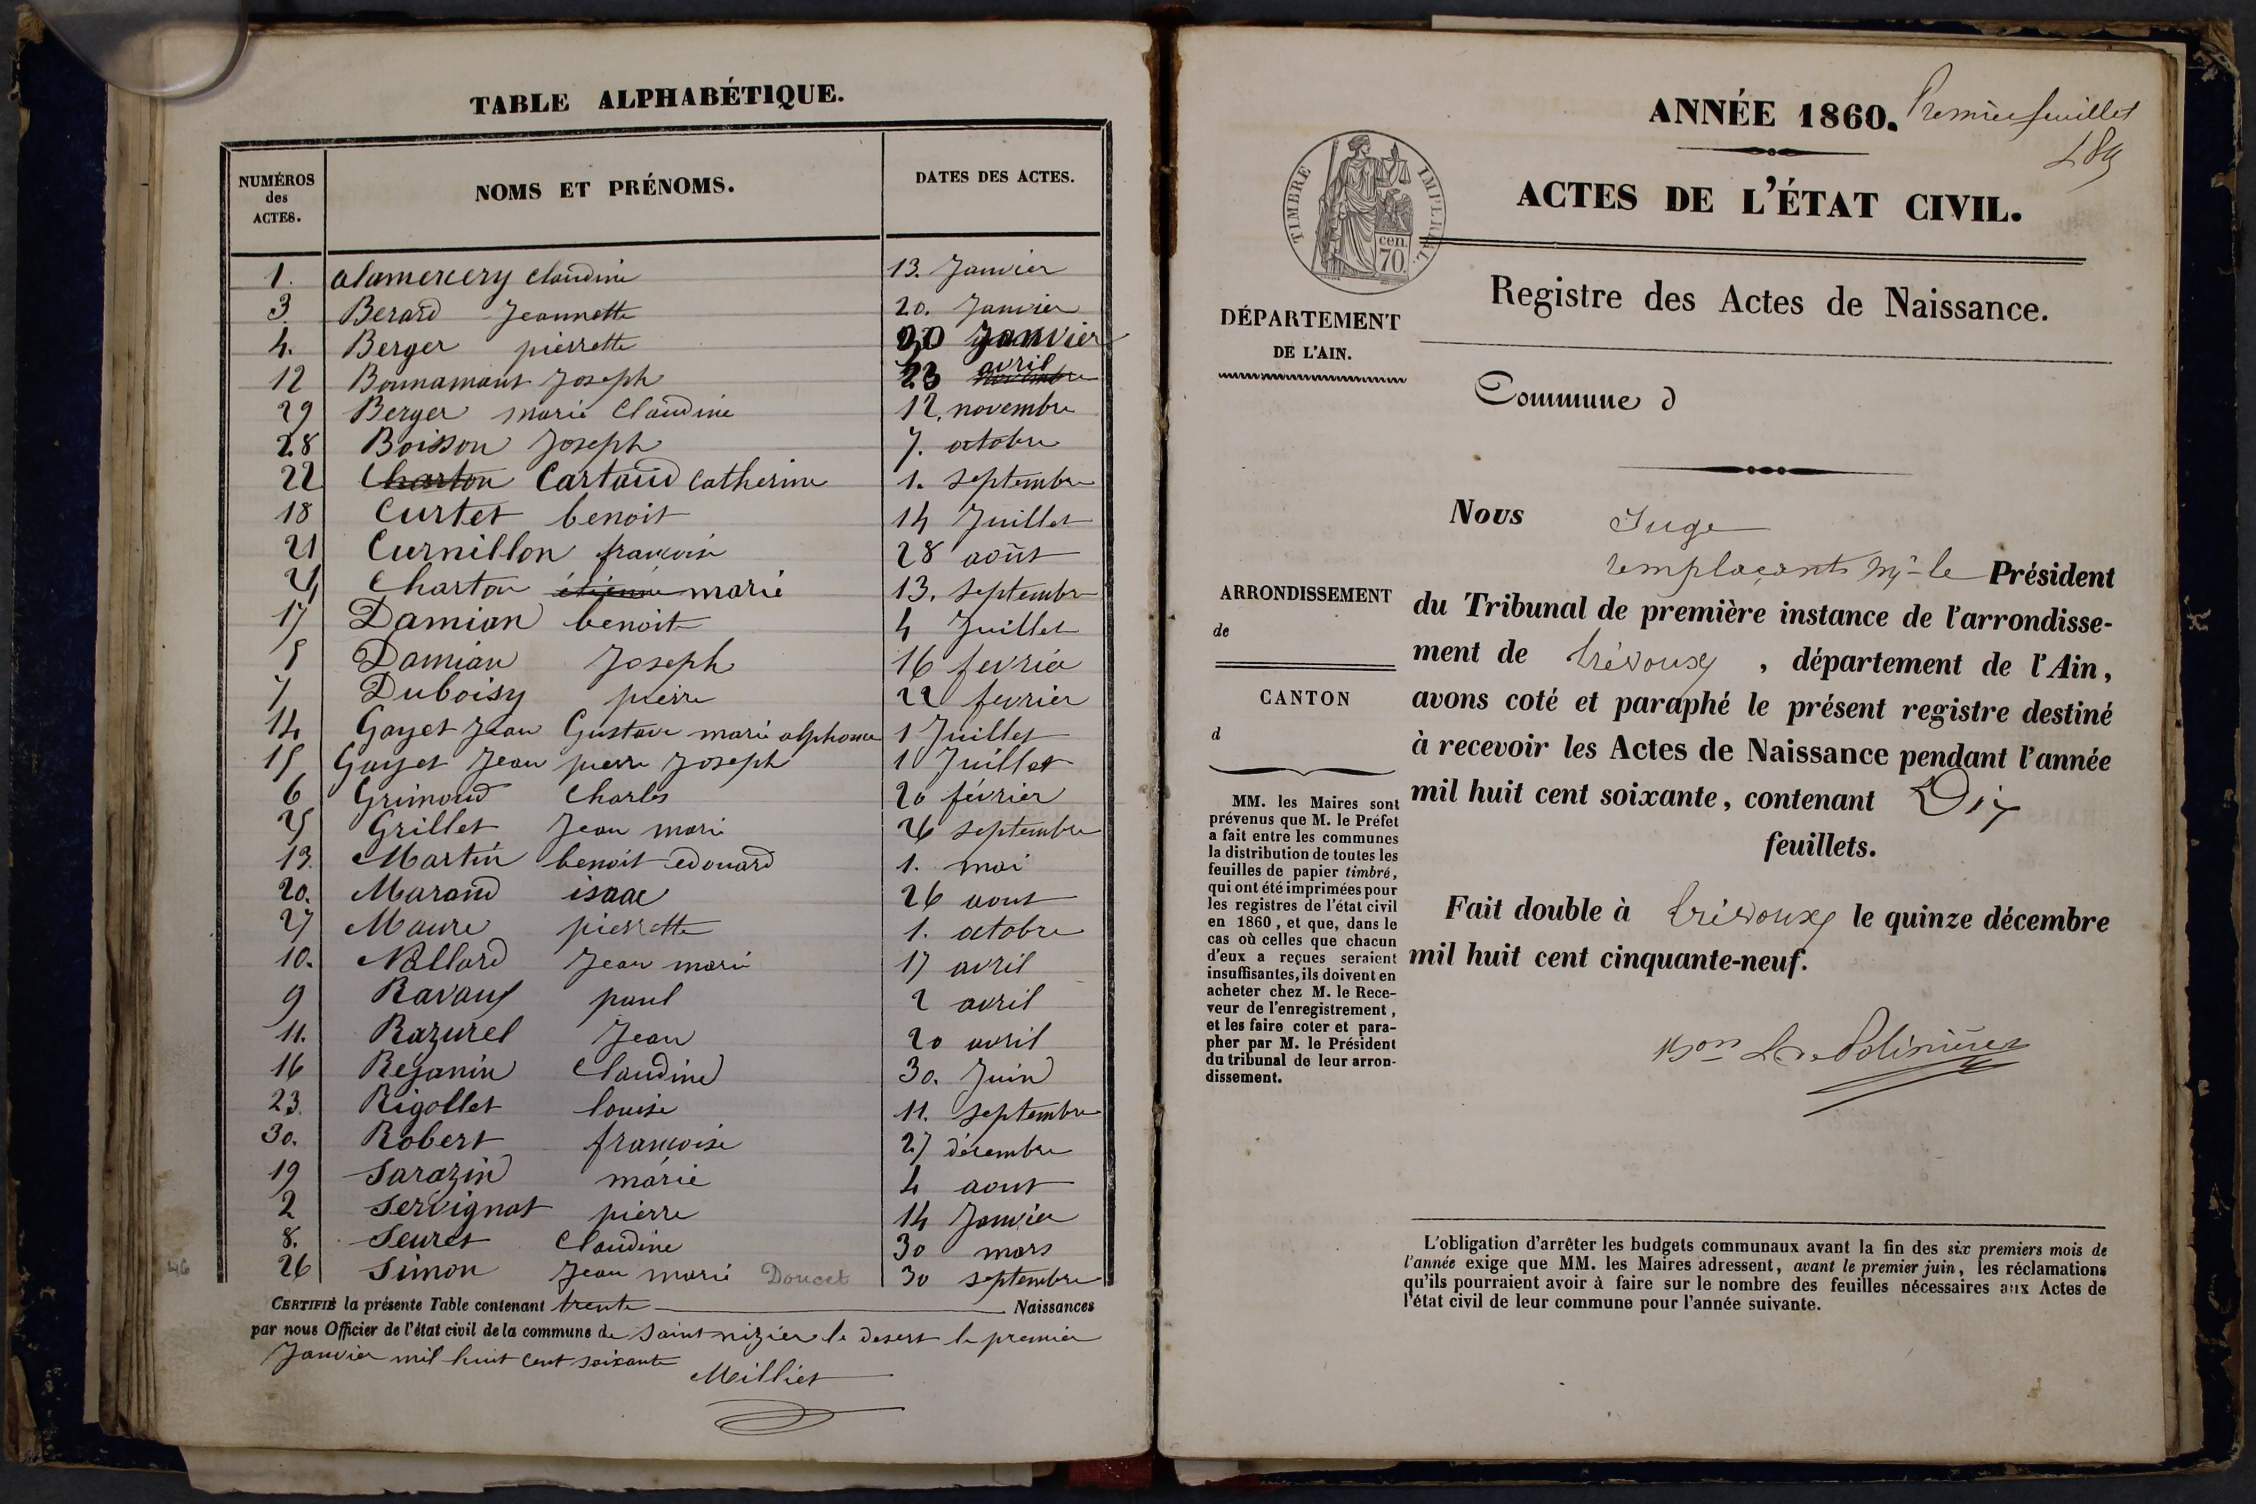 TABLE ALPHABÉTIQUE.
NUMÉROS des ACTES. NOMS ET PRÉNOMS. DATES DES ACTES.
1. alamercery Claudine 13. Janvier
3 Berard Jeannette 20. Janvier
4. Berger pierrette 20 Janvier
12 Bonnamant Joseph 23 avril novembre
29 Berger marie Claudine 12. novembre
28 Boisson Joseph 7. octobre
22 Charton Cartaud Catherine 1. septembre
18 Curtet benoit 14 Juillet
21 Curnillon francoise 28 août
24 Charton étienne marie 13. septembre
17 Damian benoit 4 Juillet
5 Damian Joseph 16 fevrier
7 Duboisy pierre 22 fevrier
14 Gayet Jean Gustave marie alphonse 1 Juillet
15 Gayet Jean pierre Joseph 1 Juillet
6 Grimoud Charles 20 février
25 Grillet Jean marie 26 septembre
13. Martin benoit edouard 1. mai
20. Maraud isaac 26 aout
27 Maure pierrette 1. octobre
10. Nallard Jean marie 17 avril
9 Ravaux paul 2 avril
11. Razurel Jean 20 avril
16 Rejanin Claudine 30. Juin
23. Rigollet louise 11. septembre
30. Robert francoise 27 décembre
19 Sarazin marie 4 aout
2 Servignat pierre 14 Janvier
8. Seuret Claudine 30 mars
26 Simon Jean marie Doucet 30 septembre
46
CERTIFIÉ la présente Table contenant trente Naissances
par nous Officier de l'état civil de la commune de saint nizier le desert le premier
Janvier mil huit cent soixante
Milliet
ANNÉE 1860. Premier feuillet
TIMBRE IMPERIAL.
cen. 70.
ACTES DE L'ÉTAT CIVIL.
Registre des Actes de Naissance.
DÉPARTEMENT
DE L'AIN.
Commune d
Nous Juge
remplaçant Mr le Président
ARRONDISSEMENT
de
CANTON
d
du Tribunal de première instance de l'arrondisse-
ment de trévoux, département de l'Ain,
avons coté et paraphé le présent registre destiné
à recevoir les Actes de Naissance pendant l'année
mil huit cent soixante, contenant Dix
feuillets.
Fait double à trévoux le quinze décembre
mil huit cent cinquante-neuf.
MM. les Maires sont
prévenus que M. le Préfet
a fait entre les communes
la distribution de toutes les
feuilles de papier timbré,
qui ont été imprimées pour
les registres de l'état civil
en 1860, et que, dans le
cas où celles que chacun
d'eux a reçues seraient
insuffisantes, ils doivent en
acheter chez M. le Rece-
veur de l'enregistrement,
et les faire coter et para-
pher par M. le Président
du tribunal de leur arron-
dissement.
L'obligation d'arrêter les budgets communaux avant la fin des six premiers mois de
l'année exige que MM. les Maires adressent, avant le premier juin, les réclamations
qu'ils pourraient avoir à faire sur le nombre des feuilles nécessaires aux Actes de
l'état civil de leur commune pour l'année suivante.